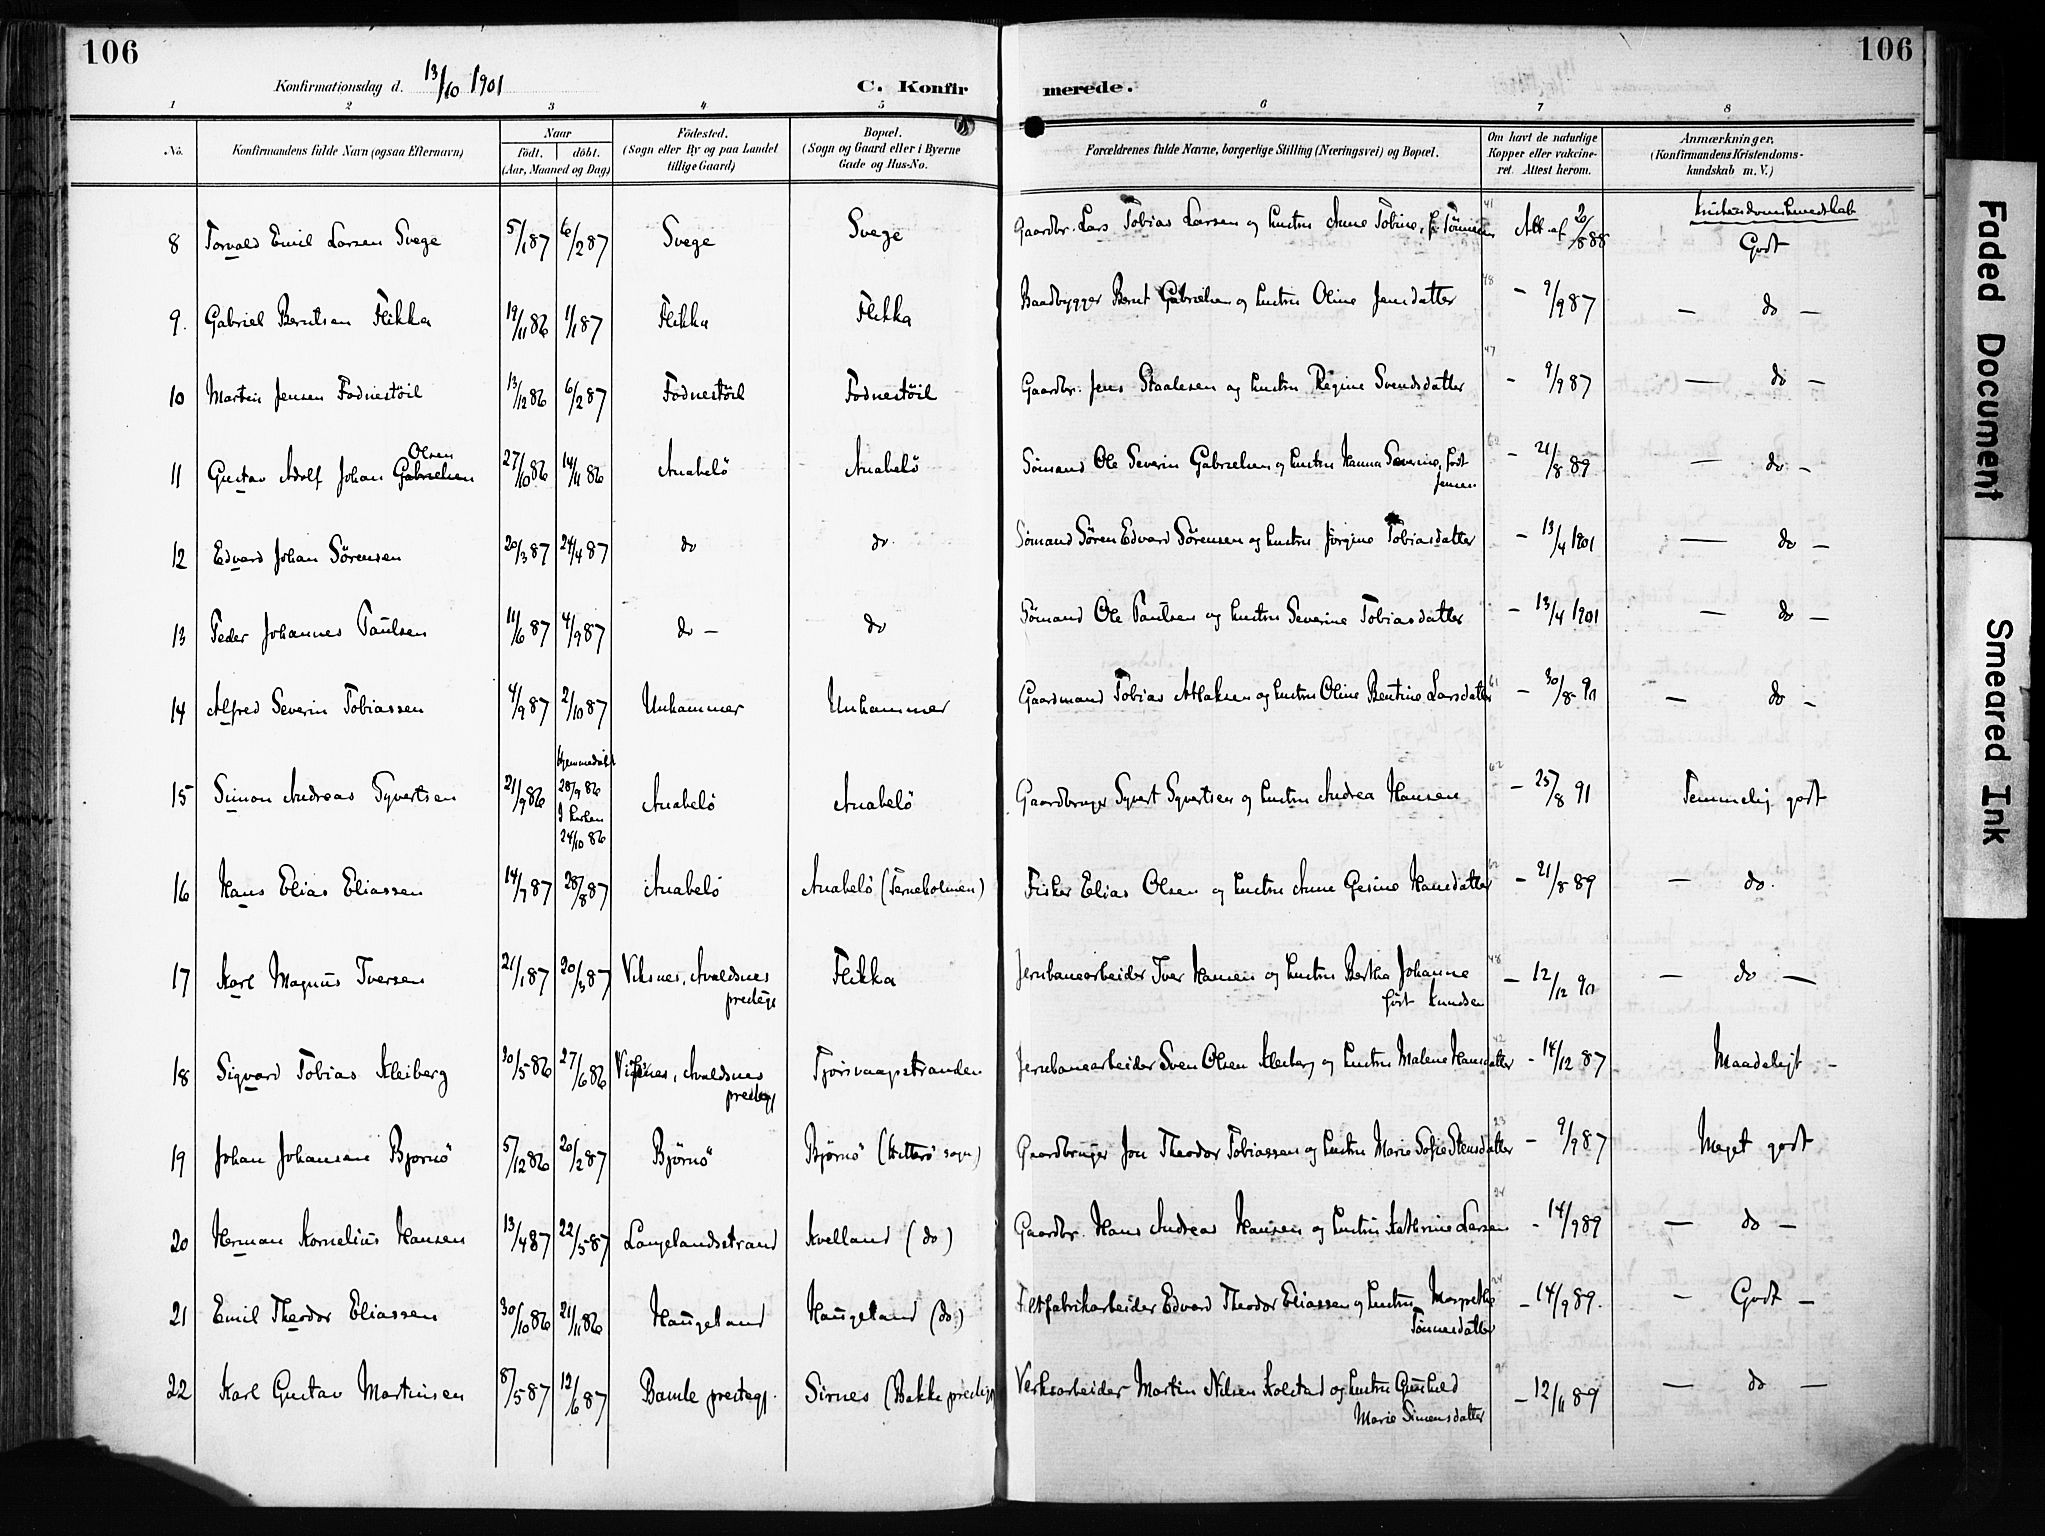 106
106
Konfirmationsdag d. 13/10 1901
C. Konfirmerede.
1 2 3 4 5 6 7 8
No.
Konfirmandens fulde Navn (ogsaa Efternavn)
Naar
født. døbt.
(Aar, Maaned og Dag)
Fødested.
(Sogn eller By og paa Landet
tillige Gaard)
Bopæl.
(Sogn og Gaard eller i Byerne
Gade og Hus-No.
Forældrenes fulde Navne, borgerlige Stilling (Næringsvei) og Bopæl.
Om havt de naturlige
Kopper eller vakcine-
ret. Attest herom.
Anmærkninger,
(Konfirmandens Kristendoms-
kundskab m. V.)
Kristendomskundskab
8 Torvald Emil Larsen Svege 5/1 87 6/2 87 Svege Svege Gaardbr. Lars Tobias Larsen og hustru Anne Tobine, f. Tönnesen 41 Att. af 2/8 88 Godt
9. Gabriel Berntsen Flikka 19/11 86 1/1 87 Flikka Flikka Baadbygger Bernt Gabrielsen og hustru Oline Jensdatter 48 – 9/9 87 – do –
10 Martin Jensen Fodnestöil 13/12 86 6/2 87 Fodnestöil Fodnestöil Gaardbr. Jens Staalesen og hustru Regine Svendsdatter 47 – 9/9 87 – do –
Olsen
11 Gustav Adolf Johan Gabrielsen 27/10 86 14/11 86 Anabelö Anabelö Sömand Ole Severin Gabrielsen og hustru Hanna Severine, född 62 – 21/8 89 – do –
Jensen
12 Edvard Johan Sörensen 20/3 87 24/4 87 do do Sömand Sören Edvard Sörensen og hustru Jörgine Tobiasdatter – 13/4 1901 – do –
13 Peder Johannes Paulsen 11/6 87 4/9 87 do – do Sömand Ole Paulsen og hustru Severine Tobiasdatter – 13/4 1901 – do –
14 Alfred Severin Tobiassen 4/9 87 2/10 87 Unhammer Unhammer Gaardmand Tobias Atlaksen og hustru Oline Bentine Larsdatter 61 – 30/8 90 – do –
Hjemmedöbt
28/9 86
15 Simon Andreas Syvertsen 21/9 86 I kirken Anabelö Anabelö Gaardbruger Syvert Syvertsen og hustru Andrea Hansen 62 – 25/8 91 Temmelig godt
24/10 86
16 Hans Elias Eliassen 14/7 87 28/8 87 Anabelö Anabelö (Terneholmen) Fisker Elias Olsen og hustru Anne Gesine Hansdatter 62 – 21/8 89 – do.
17 Karl Magnus Iversen 21/1 87 20/3 87 Viksnes, Avaldsnes Flikka Jernbanearbeider Iver Hansen og hustru Bertha Johanne 48 – 12/12 90 – do –
prestegj född Knudsen
18 Sigvard Tobias Kleiberg 30/5 86 27/6 86 Vigsnes, Avaldsnes Fjörsvaagstranden Jernbanearbeider Sven Olsen Kleiberg og hustru Malene Hansdatter 42 – 14/12 87 Maadeligt –
prestegj
19 Johan Johansen Björnö 5/12 86 20/2 87 Björnö Björnö (Hitterö sogn) Gaardbruger Jon Theodor Tobiassen og hustru Marie Sofie Stensdatter 23 – 9/9 87 Meget godt
20 Herman Kornelius Hansen 13/4 87 22/5 87 Langelandsstrand Kvelland (do) Gaardbr. Hans Andreas Hansen og hustru Kathrine Larsen 24 – 14/9 89 – do –
21 Emil Theodor Eliassen 30/10 86 21/11 86 Haugeland Haugeland (do) Filtfabrikarbeider Edvard Theodor Eliassen og hustru Margrethe 24 – 14/9 89. – Godt –
Tönnesdatter
22 Karl Gustav Martinsen 8/5 87 12/6 87 Bamle prestegj. Sirnes (Bakke prestegj) Verksarbeider Martin Nilsen Kolstad og hustru Gunhild – 12/11 89 – do –
Marie Simensdatter
Faded Document
Smeared Ink